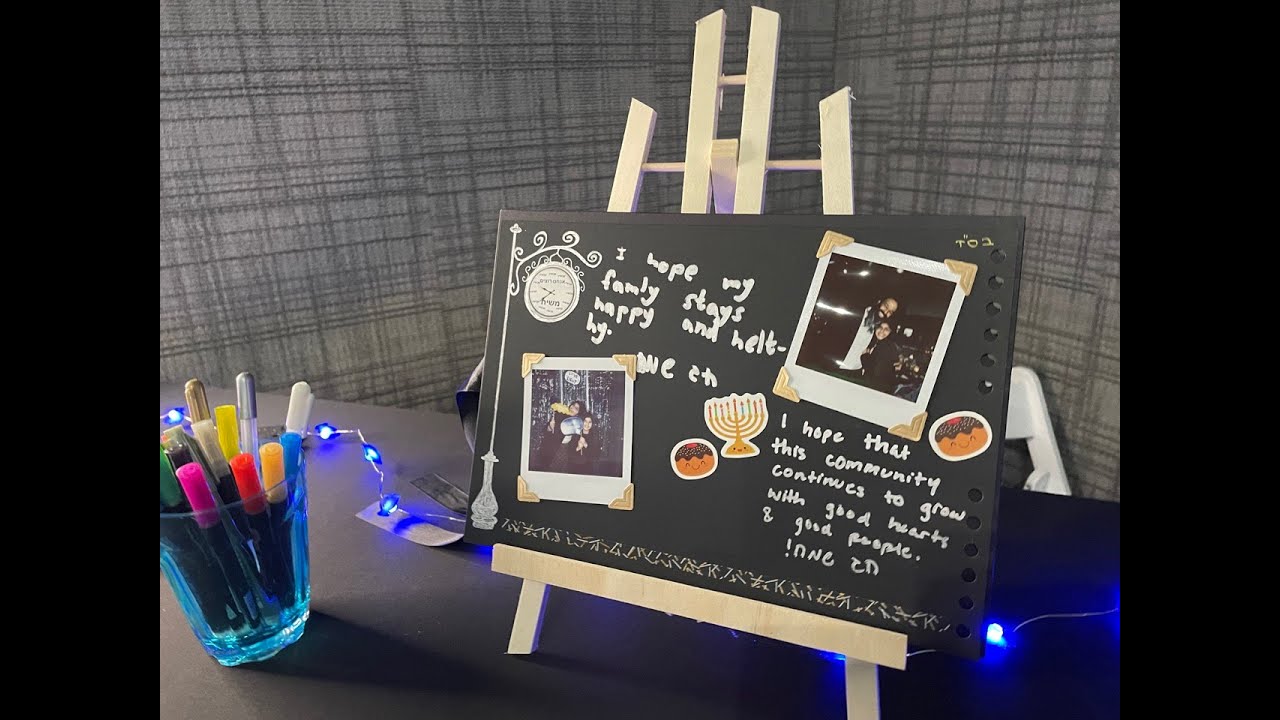 בס"ד
אנחנו רוצים
משיח
I hope my
famly stays
happy and helt-
hy.
חג שמח
I hope that
this community
continues to grow
with good hearts
& good people.
חג שמח!